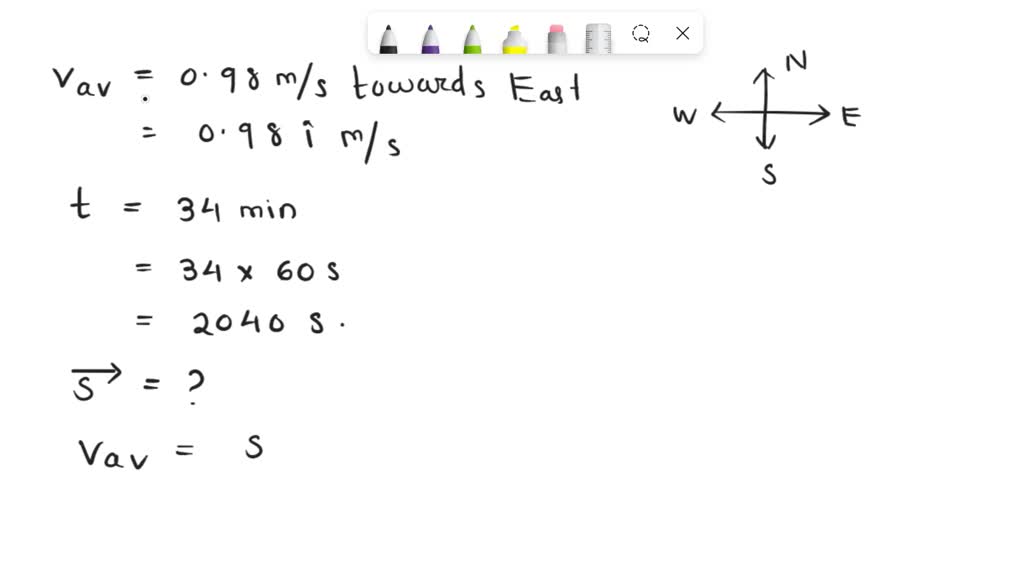 Vav = 0.98 m/s towards East
= 0.98 î m/s
t = 34 min
= 34 x 60 s
= 2040 s.
s⃗ = ?
Vav = s
N
W E
S